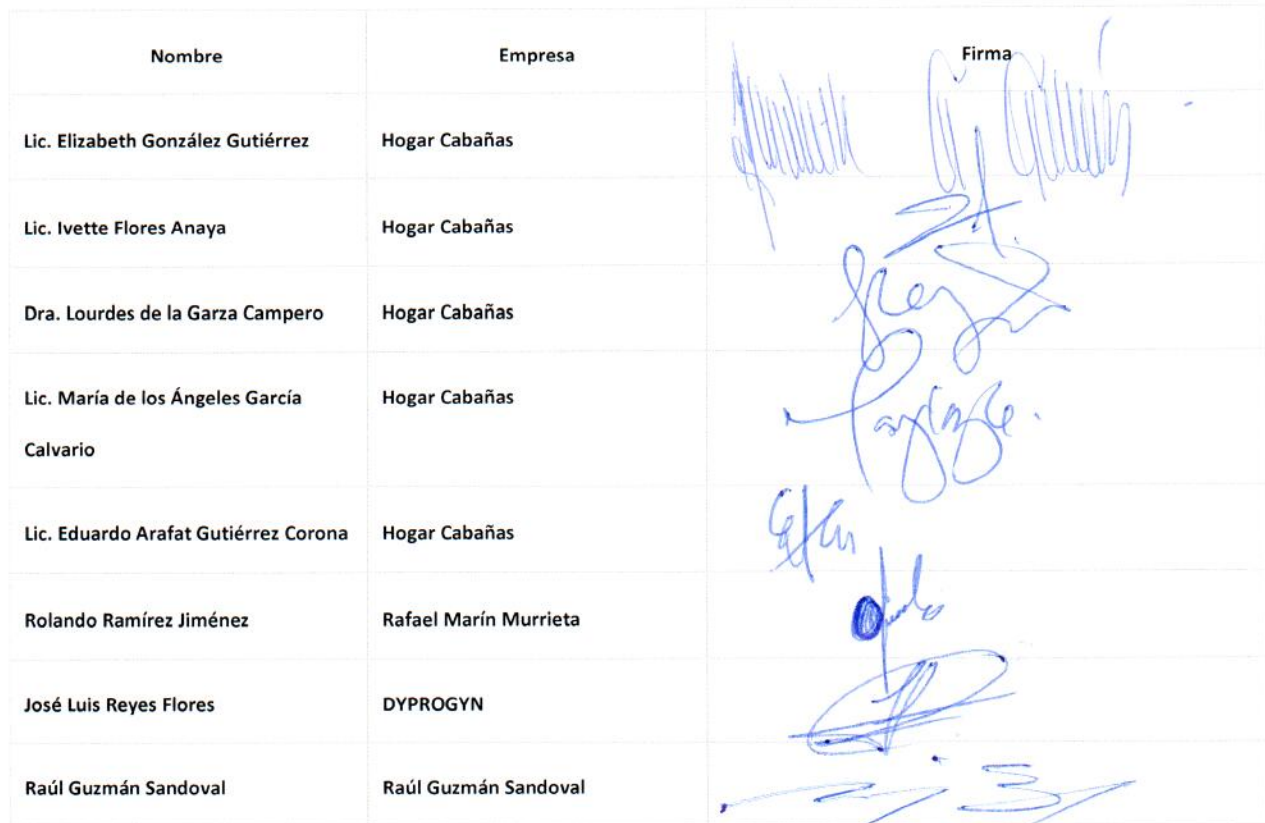 Nombre Empresa Firma
Lic. Elizabeth González Gutiérrez Hogar Cabañas
Lic. Ivette Flores Anaya Hogar Cabañas
Dra. Lourdes de la Garza Campero Hogar Cabañas
Lic. María de los Ángeles García Hogar Cabañas
Calvario
Lic. Eduardo Arafat Gutiérrez Corona Hogar Cabañas
Rolando Ramírez Jiménez Rafael Marín Murrieta
José Luis Reyes Flores DYPROGYN
Raúl Guzmán Sandoval Raúl Guzmán Sandoval